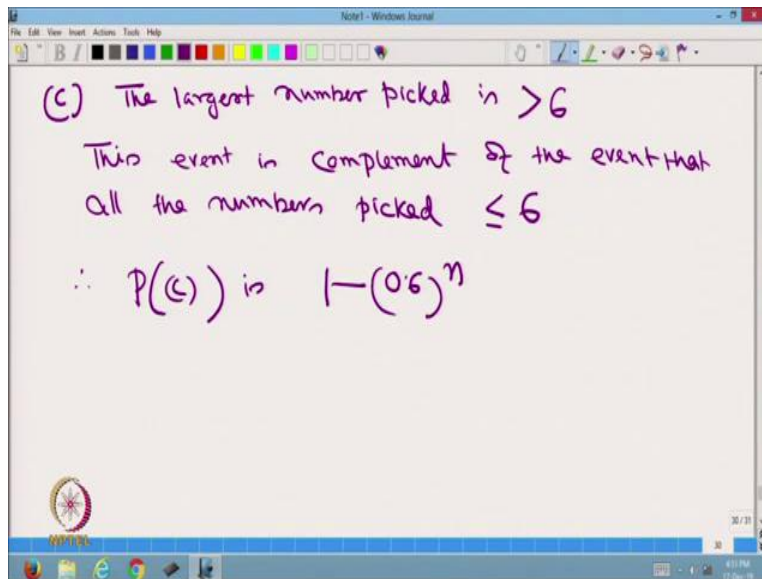 Note1 - Windows Journal
File Edit View Insert Actions Tools Help
(c) The largest number picked is >6
This event is complement of the event that
all the numbers picked ≤ 6
∴ P((c)) is 1-(0.6)^n
NPTEL
30/31
30
4:51 PM